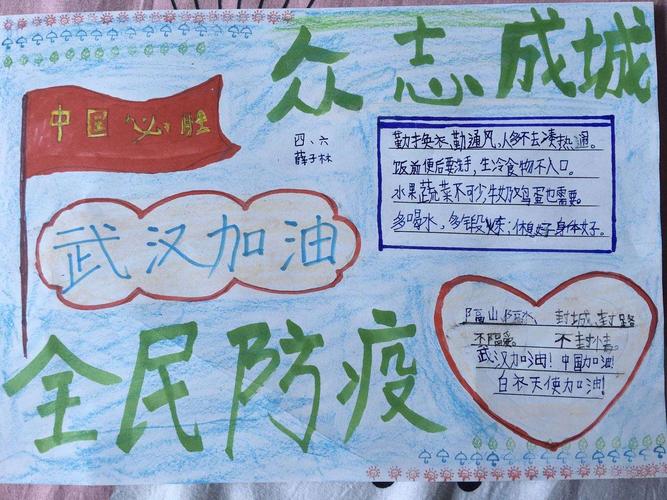 众志成城
中国必胜
四、六
薛子林
勤换衣,勤通风,人多不去凑热闹。
饭前便后要洗手,生冷食物不入口。
水果蔬菜不可少,牛奶鸡蛋也需要。
多喝水,多锻炼;休息好身体好。
武汉加油
隔山隔水、封城、封路
不隔爱。不封情。
武汉加油!中国加油!
白衣天使加油!
全民防疫